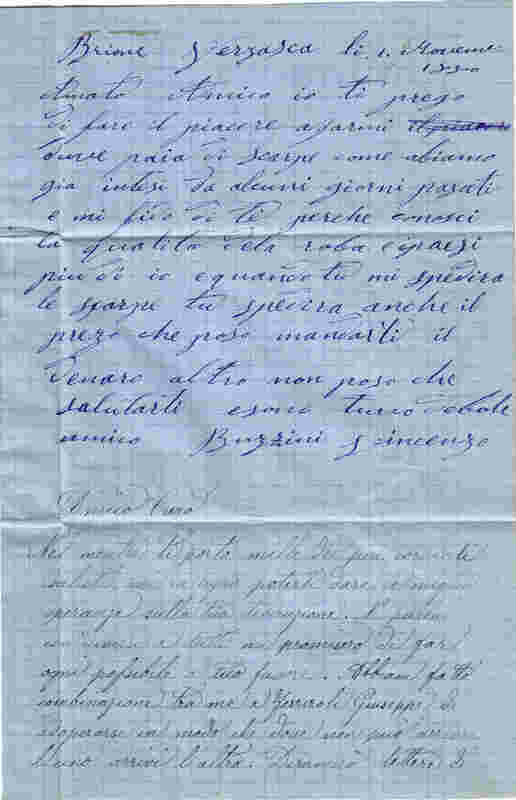 Brione Verzasca li 1. Novemb
1880
Amato Amico io ti prego
di fare il piacere afarmi
duve paia di scarpe come abiamo
gia intesi da alcuni giorni pasati
e mi fido di te perche conosci
la qualita dela roba e i praesi
piu di io e quando tu mi spedira
le scarpe tu spedira anche il
prezo che poso mandarti il
denaro altro non poso che
salutarti e sono tuvo
amico Buzzini Vincenzo
Amico Caro
Nel mentre ti porto mille dei piu
saluti, son poterti dare
speranze sulla tua
con e tutti mi promisero di far
ogni possibile a tuo favore. Abbiam fatto
combinazione tra me e Giuseppe di
adoperarsi in modo che dove non può arrivare
l'uno arrivi l'altro. lettere